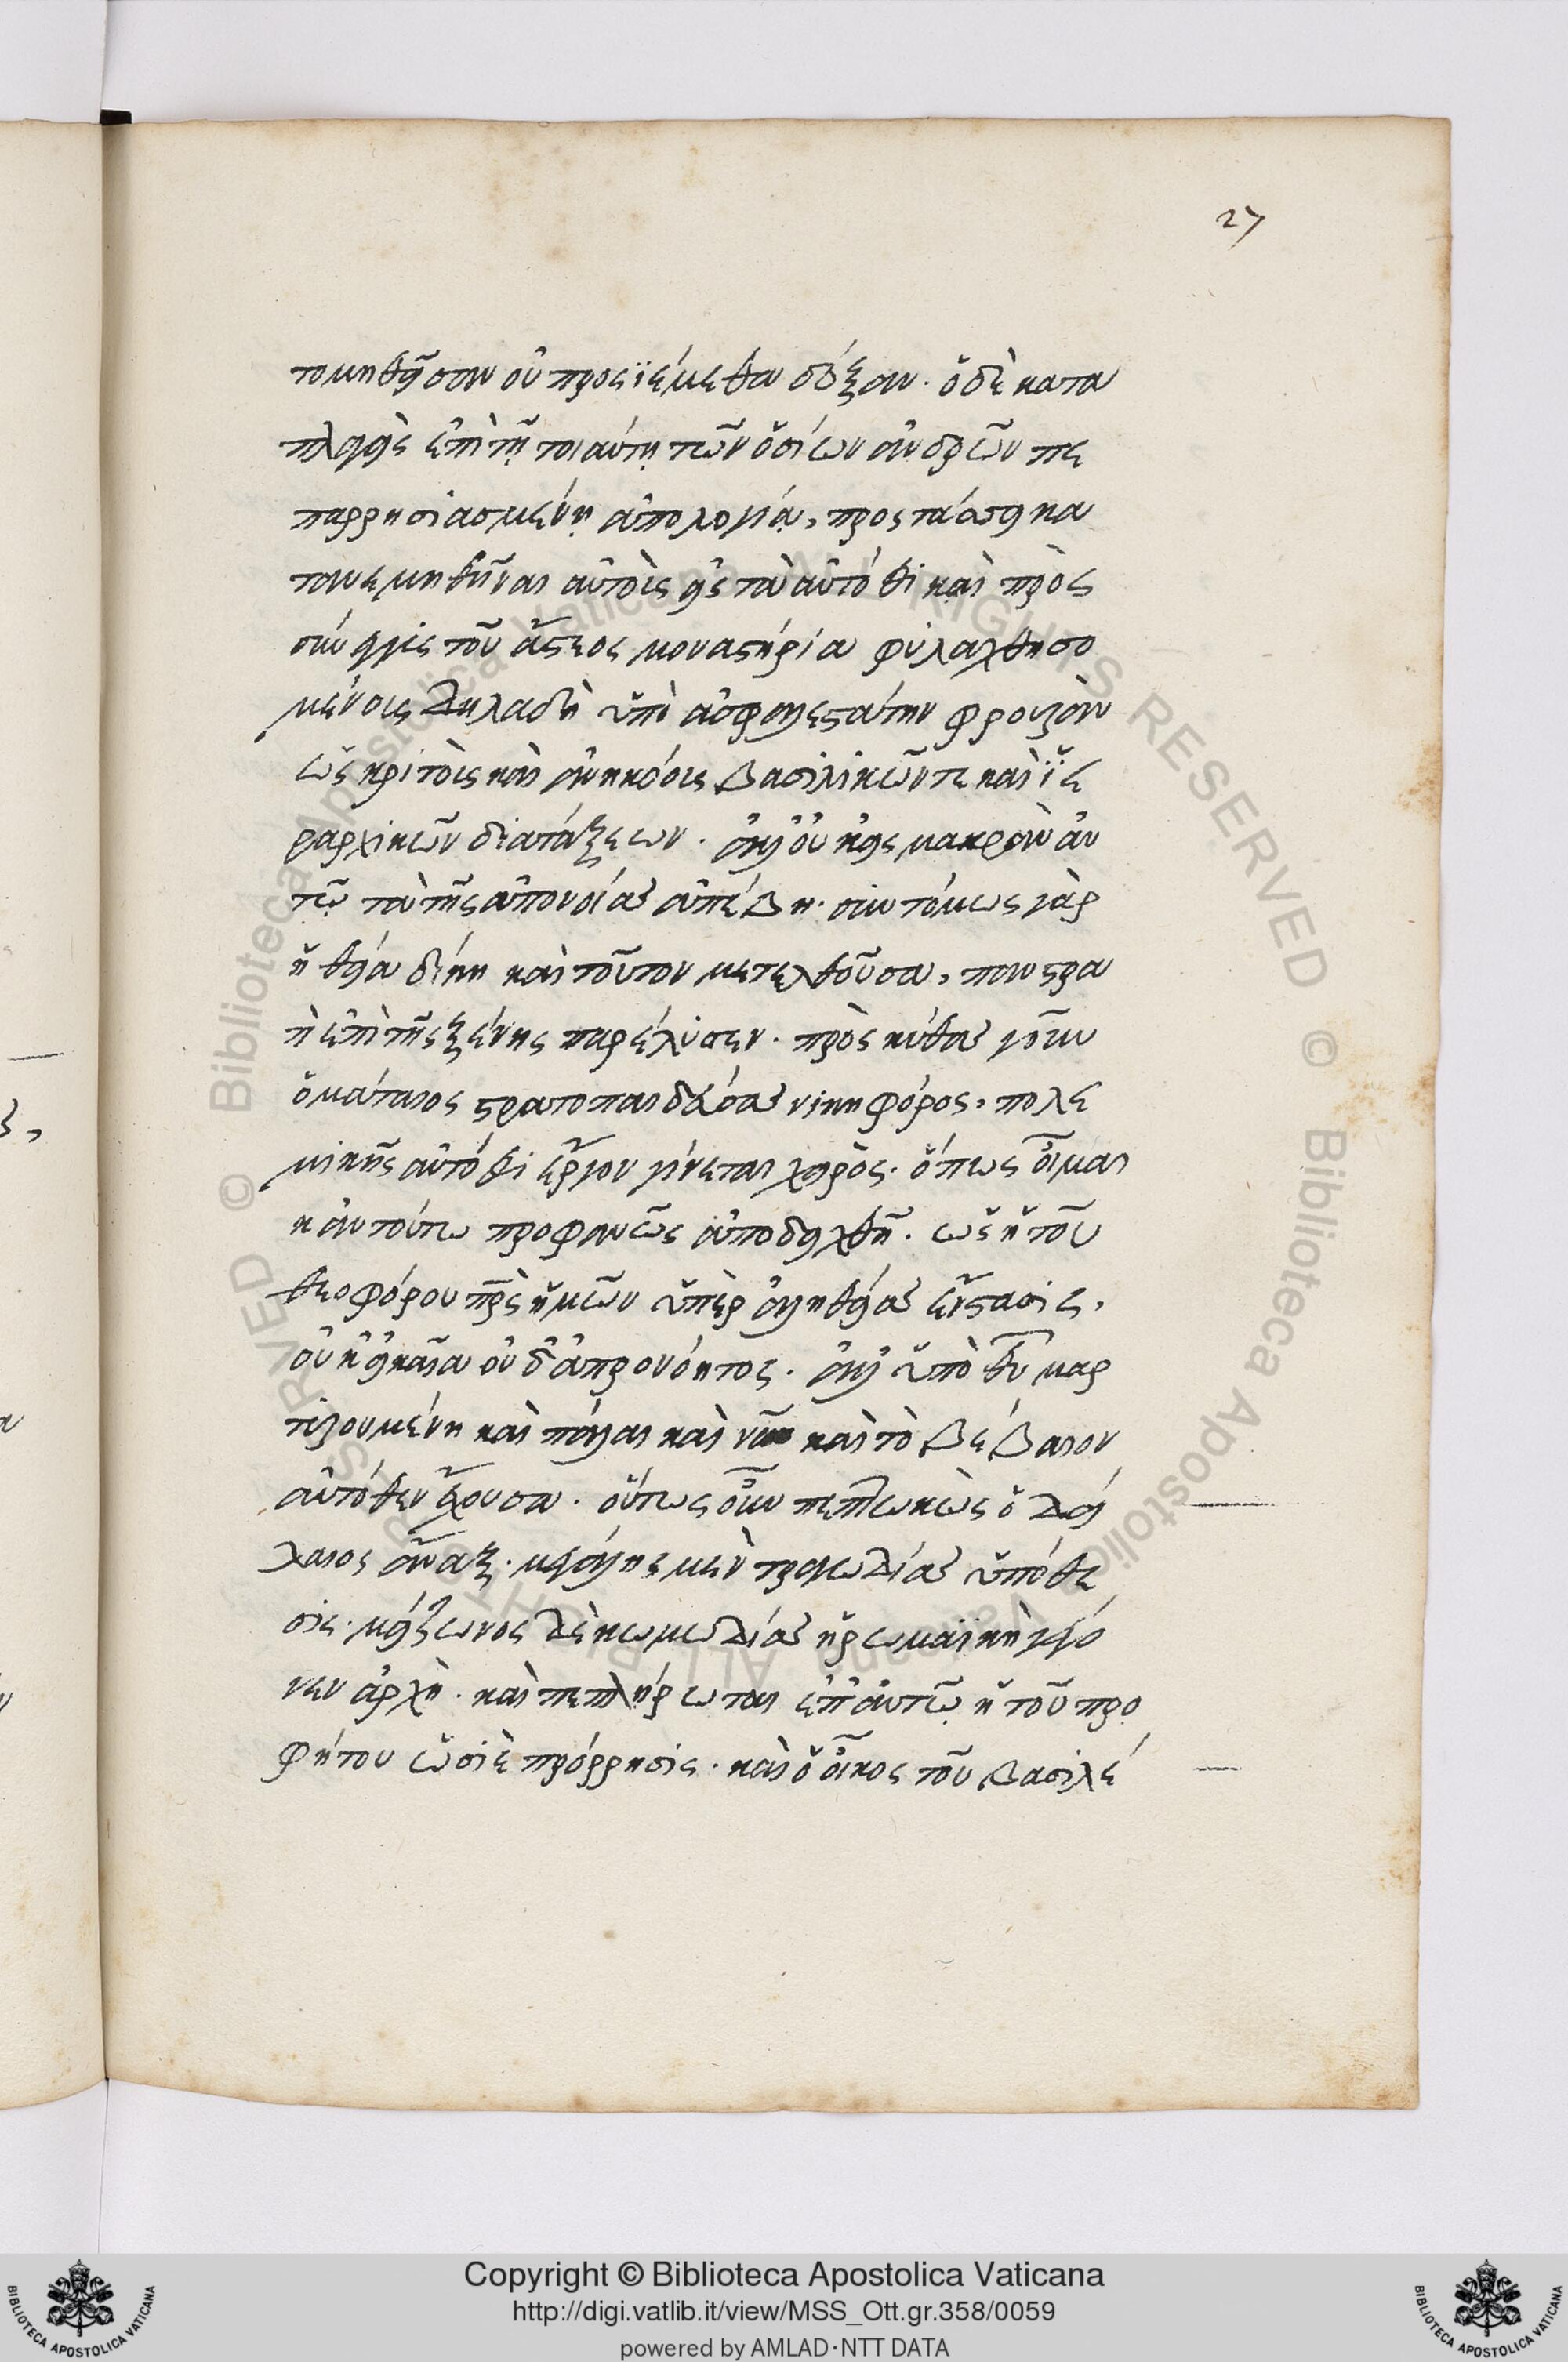 27
τομηθεῖσαν οὐ προςϊέμεθα δόξαν. ὁ δὲ κατα
πλαγεὶς ἐπὶ τῇ τοιαύτῃ τῶν ὁσίων ἀνδρῶν πε
παρρησιασμένῃ ἀπολογίᾳ, προςτάσσει κα
τανεμηθῆναι αὐτοὺς εἰς τὰ αὐτόθι καὶ πρὸς
σύνεγγυς τοῦ ἄστεος μοναστήρια φυλαχθησο
μένοις δηλαδὴ ὑπὸ ἀσφαλεστάτην φρουρὰν
ὡς κριτοὶς καὶ ἀνηκόοις βασιλικῶν τε καὶ ἱε
ραρχικῶν διατάξεων. ἀλλ' οὐκ εἰς μακρὰν ἀυ
τῷ τὰ τῆς ἀπονοίας ἀπέβη. συντόμως γὰρ
ἡ θεία δίκη καὶ τοῦτον μετελθοῦσα, πανστρα
τὶ ἐπὶ τῆς ξένης παρέλυσεν. πρὸς σκύθας γοῦν
ὁ μάταιος στρατοπαιδεύσας νικηφόρος, πολε
μικῆς αὐτόθι ἔργον γίνεται χειρός. ὅπως οἶμαι
κἀν τούτω προφανῶς ἀποδειχθῇ. ὡς ἡ τοῦ
θεοφόρου πρς ἡμῶν ὑπὲρ ἀληθείας ἔνστασις,
οὐκ εἰκαῖα οὐδ' ἀπρονόητος. ἀλλ' ὑπὸ θυ μαρ
τυρουμένη καὶ πάλαι καὶ νῦν καὶ τὸ βέβαιον
αὐτόθεν ἔχουσα. οὕτως οὖν πεπτωκὼς ὁ δεί
λαιος ἄναξ. μεγάλης μὲν τραγωδίας ὑπόθε
σις. μείζωνος δὲ κωμωδίας ἡ ῥωμαϊκὴ γέγο
νεν ἀρχὴ. καὶ πεπλήρωται ἐπ' ἀυτῷ ἡ τοῦ προ
φήτου ὡσιὲ πρόρρησις. καὶ ὁ οἶκος τοῦ βασιλέ
Copyright © Biblioteca Apostolica Vaticana
http://digi.vatlib.it/view/MSS_Ott.gr.358/0059
powered by AMLAD·NTT DATA